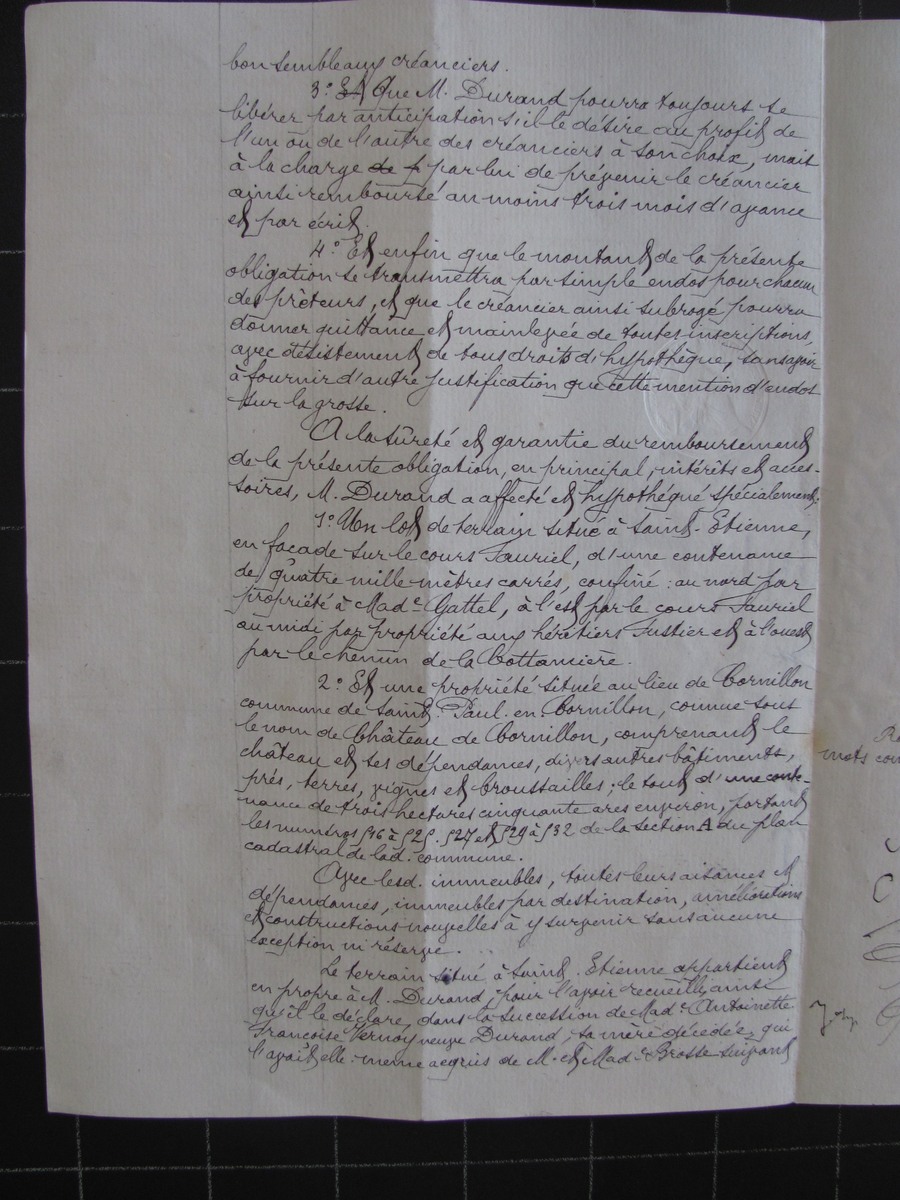 bon semble aux créanciers.
3° Et Que M. Durand pourra toujours se
libérer par anticipation s'il le désire au profit de
l'un ou de l'autre des créanciers à son choix, mais
à la charge de p par lui de prévenir le créancier
ainsi remboursé au moins trois mois d'avance
et par écrit.
4° Et enfin que le montant de la présente
obligation se transmettra par simple endos pour chacun
des prêteurs, et que le créancier ainsi subrogé pourra
donner quittance et mainlevée de toutes inscriptions,
avec désistement de tous droits d'hypothèque, sans avoir
à fournir d'autre justification que cette mention d'endos
sur la grosse.
A la sûreté et garantie du remboursement
de la présente obligation, en principal, intérêts et acces-
soires, M. Durand a affecté et hypothéqué spécialement:
1° Un lot de terrain situé à Saint-Etienne,
en façade sur le cours Fauriel, d'une contenance
de quatre mille mètres carrés, confiné: au nord par
propriété à Made Gattel, à l'est par le cours Fauriel
au midi par propriété aux héritiers Fustier et à l'ouest
par le chemin de la Cottancière.
2° Et une propriété située au lieu de Cornillon
commune de Saint-Paul-en-Cornillon, connue sous
le nom de Château de Cornillon, comprenant le
château et ses dépendances, divers autres bâtiments,
prés, terres, vignes et broussailles; le tout d'une conte-
nance de trois hectares cinquante ares environ, portant
les numéros 516 à 525. 527 et 529 à 532 de la section A du plan
cadastral de lad. commune.
Avec lesd. immeubles, toutes leurs aisances et
dépendances, immeubles par destination, améliorations
et constructions nouvelles à y survenir sans aucune
exception ni réserve.
Le terrain situé à Saint-Etienne appartient
en propre à M. Durand, pour l'avoir recueilli, ainsi
qu'il le déclare, dans la succession de Made Antoinette
Françoise Vernoy veuve Durand, sa mère décédée, qui
l'avait elle-même acquis de M. et Made Brosse suivant
mots